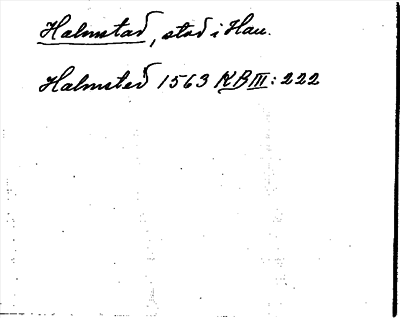 Halmstad, stad i Hall.
Halmsted 1563 KB III: 222